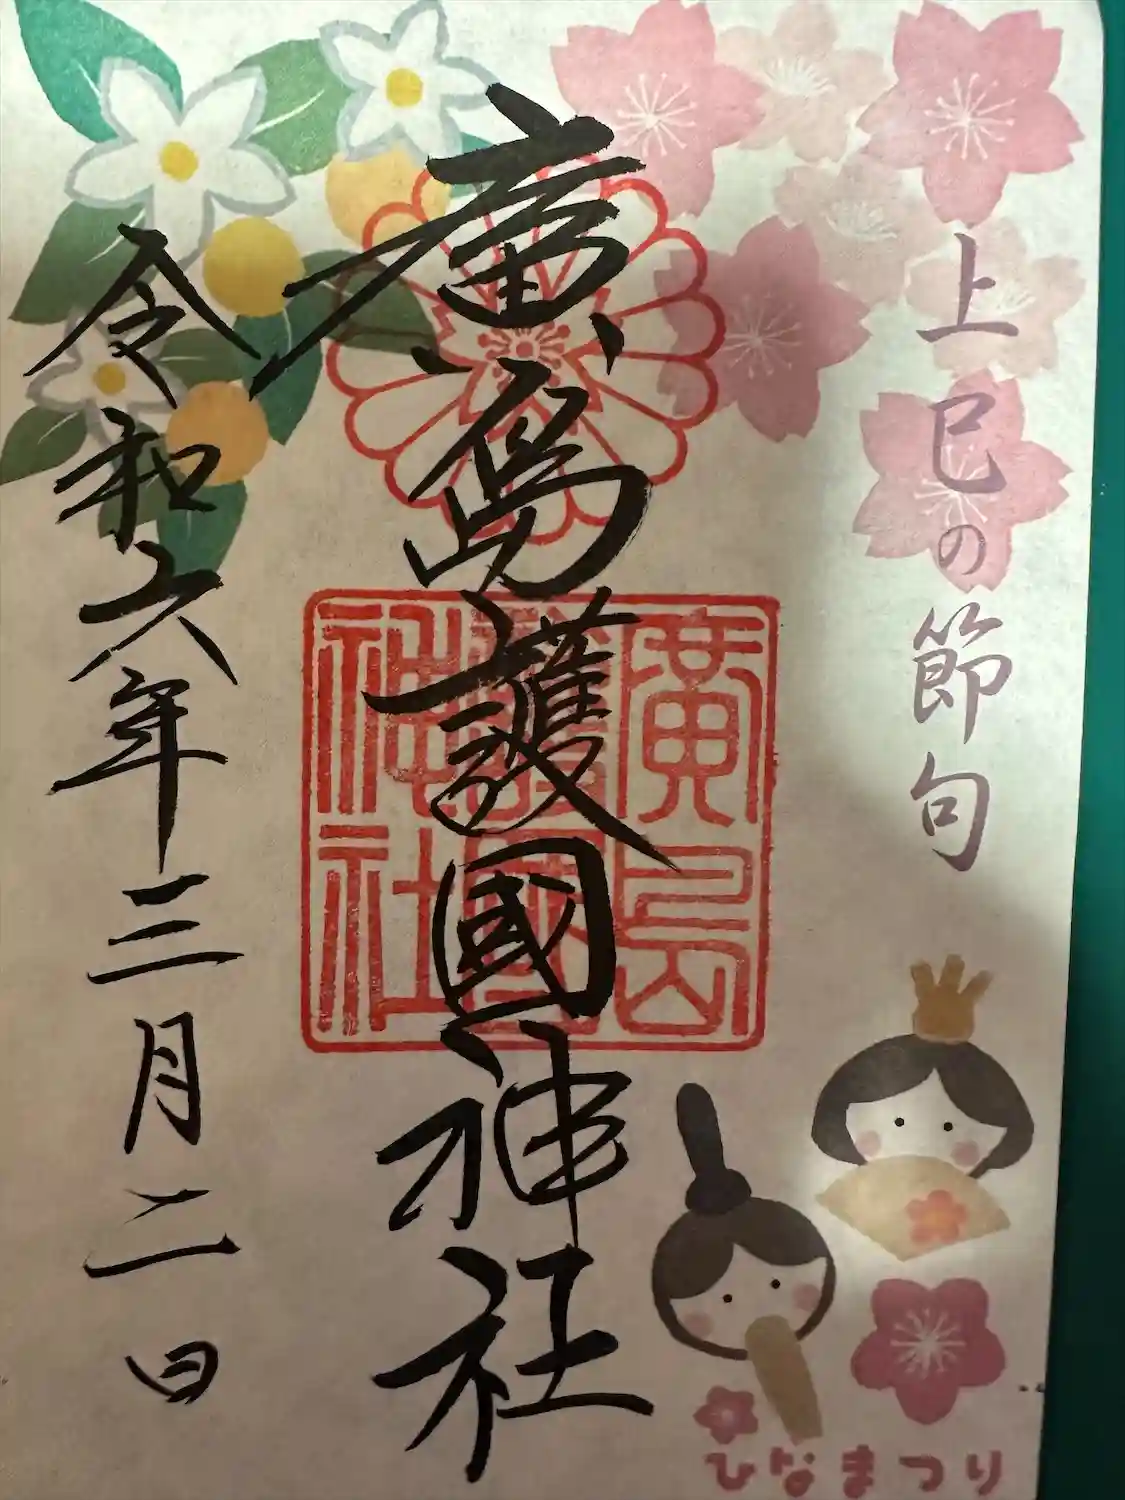 上巳の節句
廣島護國神社
廣島
護國
神社
令和六年三月二日
ひなまつり